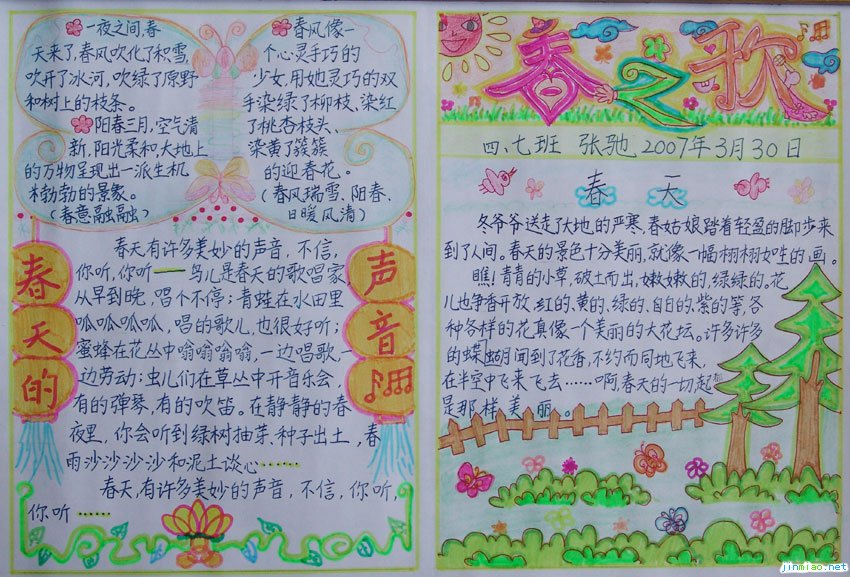 一夜之间,春
天来了,春风吹化了积雪,
吹开了冰河,吹绿了原野
和树上的枝条。
阳春三月,空气清
新,阳光柔和,大地上
的万物呈现出一派生机
勃勃的景象。
(春意融融)
春风像一
个心灵手巧的
少女,用她灵巧的双
手染绿了柳枝、染红
了桃杏枝头、
染黄了簇簇
的迎春花。
(春风瑞雪、阳春、
日暖风清)
春天的
声音
春天有许多美妙的声音,不信,
你听,你听——鸟儿是春天的歌唱家,
从早到晚,唱个不停;青蛙在水田里
呱呱呱呱,唱的歌儿,也很好听;
蜜蜂在花丛中嗡嗡嗡嗡,一边唱歌,一
边劳动;虫儿们在草丛中开音乐会,
有的弹琴,有的吹笛。在静静的春
夜里,你会听到绿树抽芽、种子出土,春
雨沙沙沙沙和泥土谈心……
春天,有许多美妙的声音,不信,你听,
你听……
春之歌
四.七班 张驰 2007年3月30日
春天
冬爷爷送走了大地的严寒,春姑娘踏着轻盈的脚步来
到了人间。春天的景色十分美丽,就像一幅栩栩如生的画。
瞧!青青的小草,破土而出,嫩嫩的,绿绿的。花
儿也争香开放,红的、黄的、绿的、白的、紫的等,各
种各样的花真像一个美丽的大花坛。许多许多
的蝴蝶间到了花香,不约而同地飞来,
在半空中飞来飞去……啊,春天的一切起
是那样美丽。
jinmiao.net